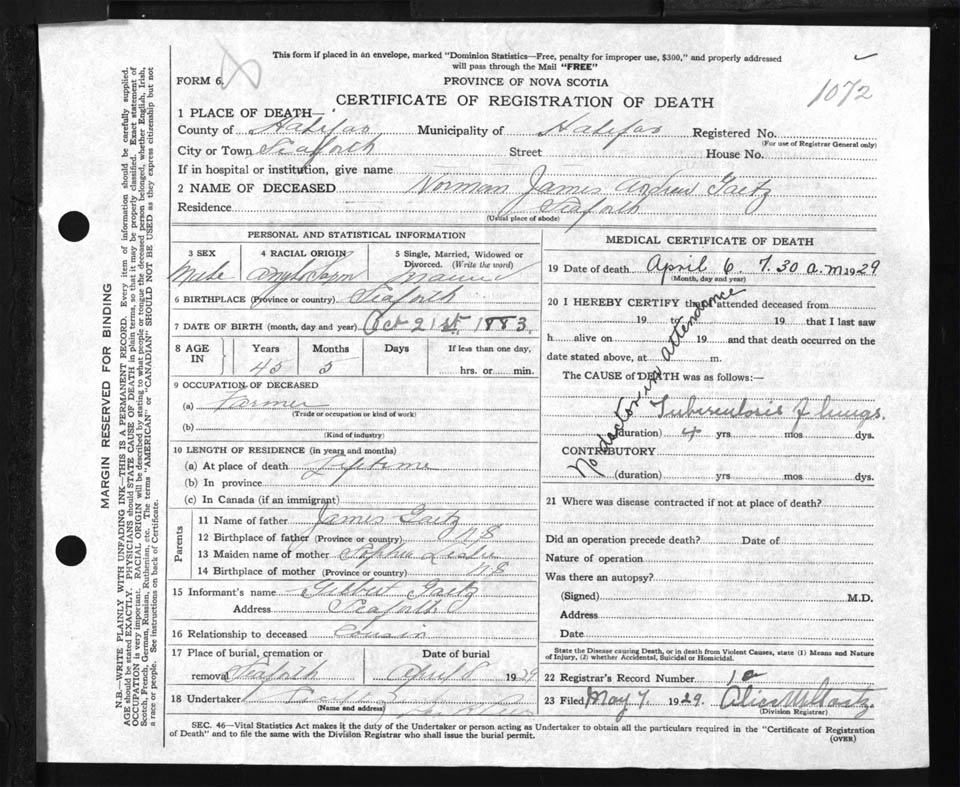 This form if placed in an envelope, marked "Dominion Statistics—Free, penalty for improper use, $300," and properly addressed
will pass through the Mail "FREE"
FORM 6.
PROVINCE OF NOVA SCOTIA
1072
CERTIFICATE OF REGISTRATION OF DEATH
1 PLACE OF DEATH—
County of Halifax Municipality of Halifax Registered No.
(For use of Registrar General only)
City or Town Seaforth Street House No.
If in hospital or institution, give name
2 NAME OF DECEASED Norman James Andrew Gaetz
Residence Seaforth
(Usual place of abode)
PERSONAL AND STATISTICAL INFORMATION
3 SEX 4 RACIAL ORIGIN 5 Single, Married, Widowed or Divorced. (Write the word)
Male
6 BIRTHPLACE (Province or country) Seaforth
7 DATE OF BIRTH (month, day and year) Oct 21st 1883
8 AGE IN Years Months Days If less than one day,
45 5 hrs. or min.
9 OCCUPATION OF DECEASED
(a) Farmer
(Trade or occupation or kind of work)
(b)
(Kind of industry)
10 LENGTH OF RESIDENCE (in years and months)
(a) At place of death Lifetime
(b) In province
(c) In Canada (if an immigrant)
Parents
11 Name of father James Gaetz
12 Birthplace of father (Province or country) N.S
13 Maiden name of mother Sophia
14 Birthplace of mother (Province or country) N.S
15 Informant's name Gilbert Gaetz
Address Seaforth
16 Relationship to deceased Cousin
17 Place of burial, cremation or removal Seaforth Date of burial April 8 1929
18 Undertaker
(Name and address)
MEDICAL CERTIFICATE OF DEATH
19 Date of death April 6. 7.30 a.m 1929
(Month, day and year)
20 I HEREBY CERTIFY that I attended deceased from
19 to 19 that I last saw
h alive on 19 and that death occurred on the
date stated above, at m.
The CAUSE of DEATH was as follows:—
No doctor in attendance
Tuberculosis of lungs.
(duration) 4 yrs mos dys.
CONTRIBUTORY
(duration) yrs. mos. dys.
21 Where was disease contracted if not at place of death?
Did an operation precede death? Date of
Nature of operation
Was there an autopsy?
(Signed) M.D.
Address
Date
State the Disease causing Death, or in death from Violent Causes, state (1) Means and Nature
of Injury, (2) whether Accidental, Suicidal or Homicidal.
22 Registrar's Record Number
23 Filed May 7. 1929.
(Division Registrar)
SEC. 46—Vital Statistics Act makes it the duty of the Undertaker or person acting as Undertaker to obtain all the particulars required in the "Certificate of Registration
of Death" and to file the same with the Division Registrar who shall issue the burial permit.
(OVER)
MARGIN RESERVED FOR BINDING
N.B.—WRITE PLAINLY WITH UNFADING INK—THIS IS A PERMANENT RECORD. Every item of information should be carefully supplied.
AGE should be stated EXACTLY. PHYSICIANS should STATE CAUSE OF DEATH in plain terms, so that it may be properly classified. Exact statement of
OCCUPATION is very important. RACIAL ORIGIN will be described by stating to what people or tongue the deceased person belonged, whether English, Irish,
Scotch, French, German, Russian, Ruthenian, etc. The terms "AMERICAN" or "CANADIAN" SHOULD NOT BE USED as they express citizenship but not
a race or people. See instructions on back of Certificate.